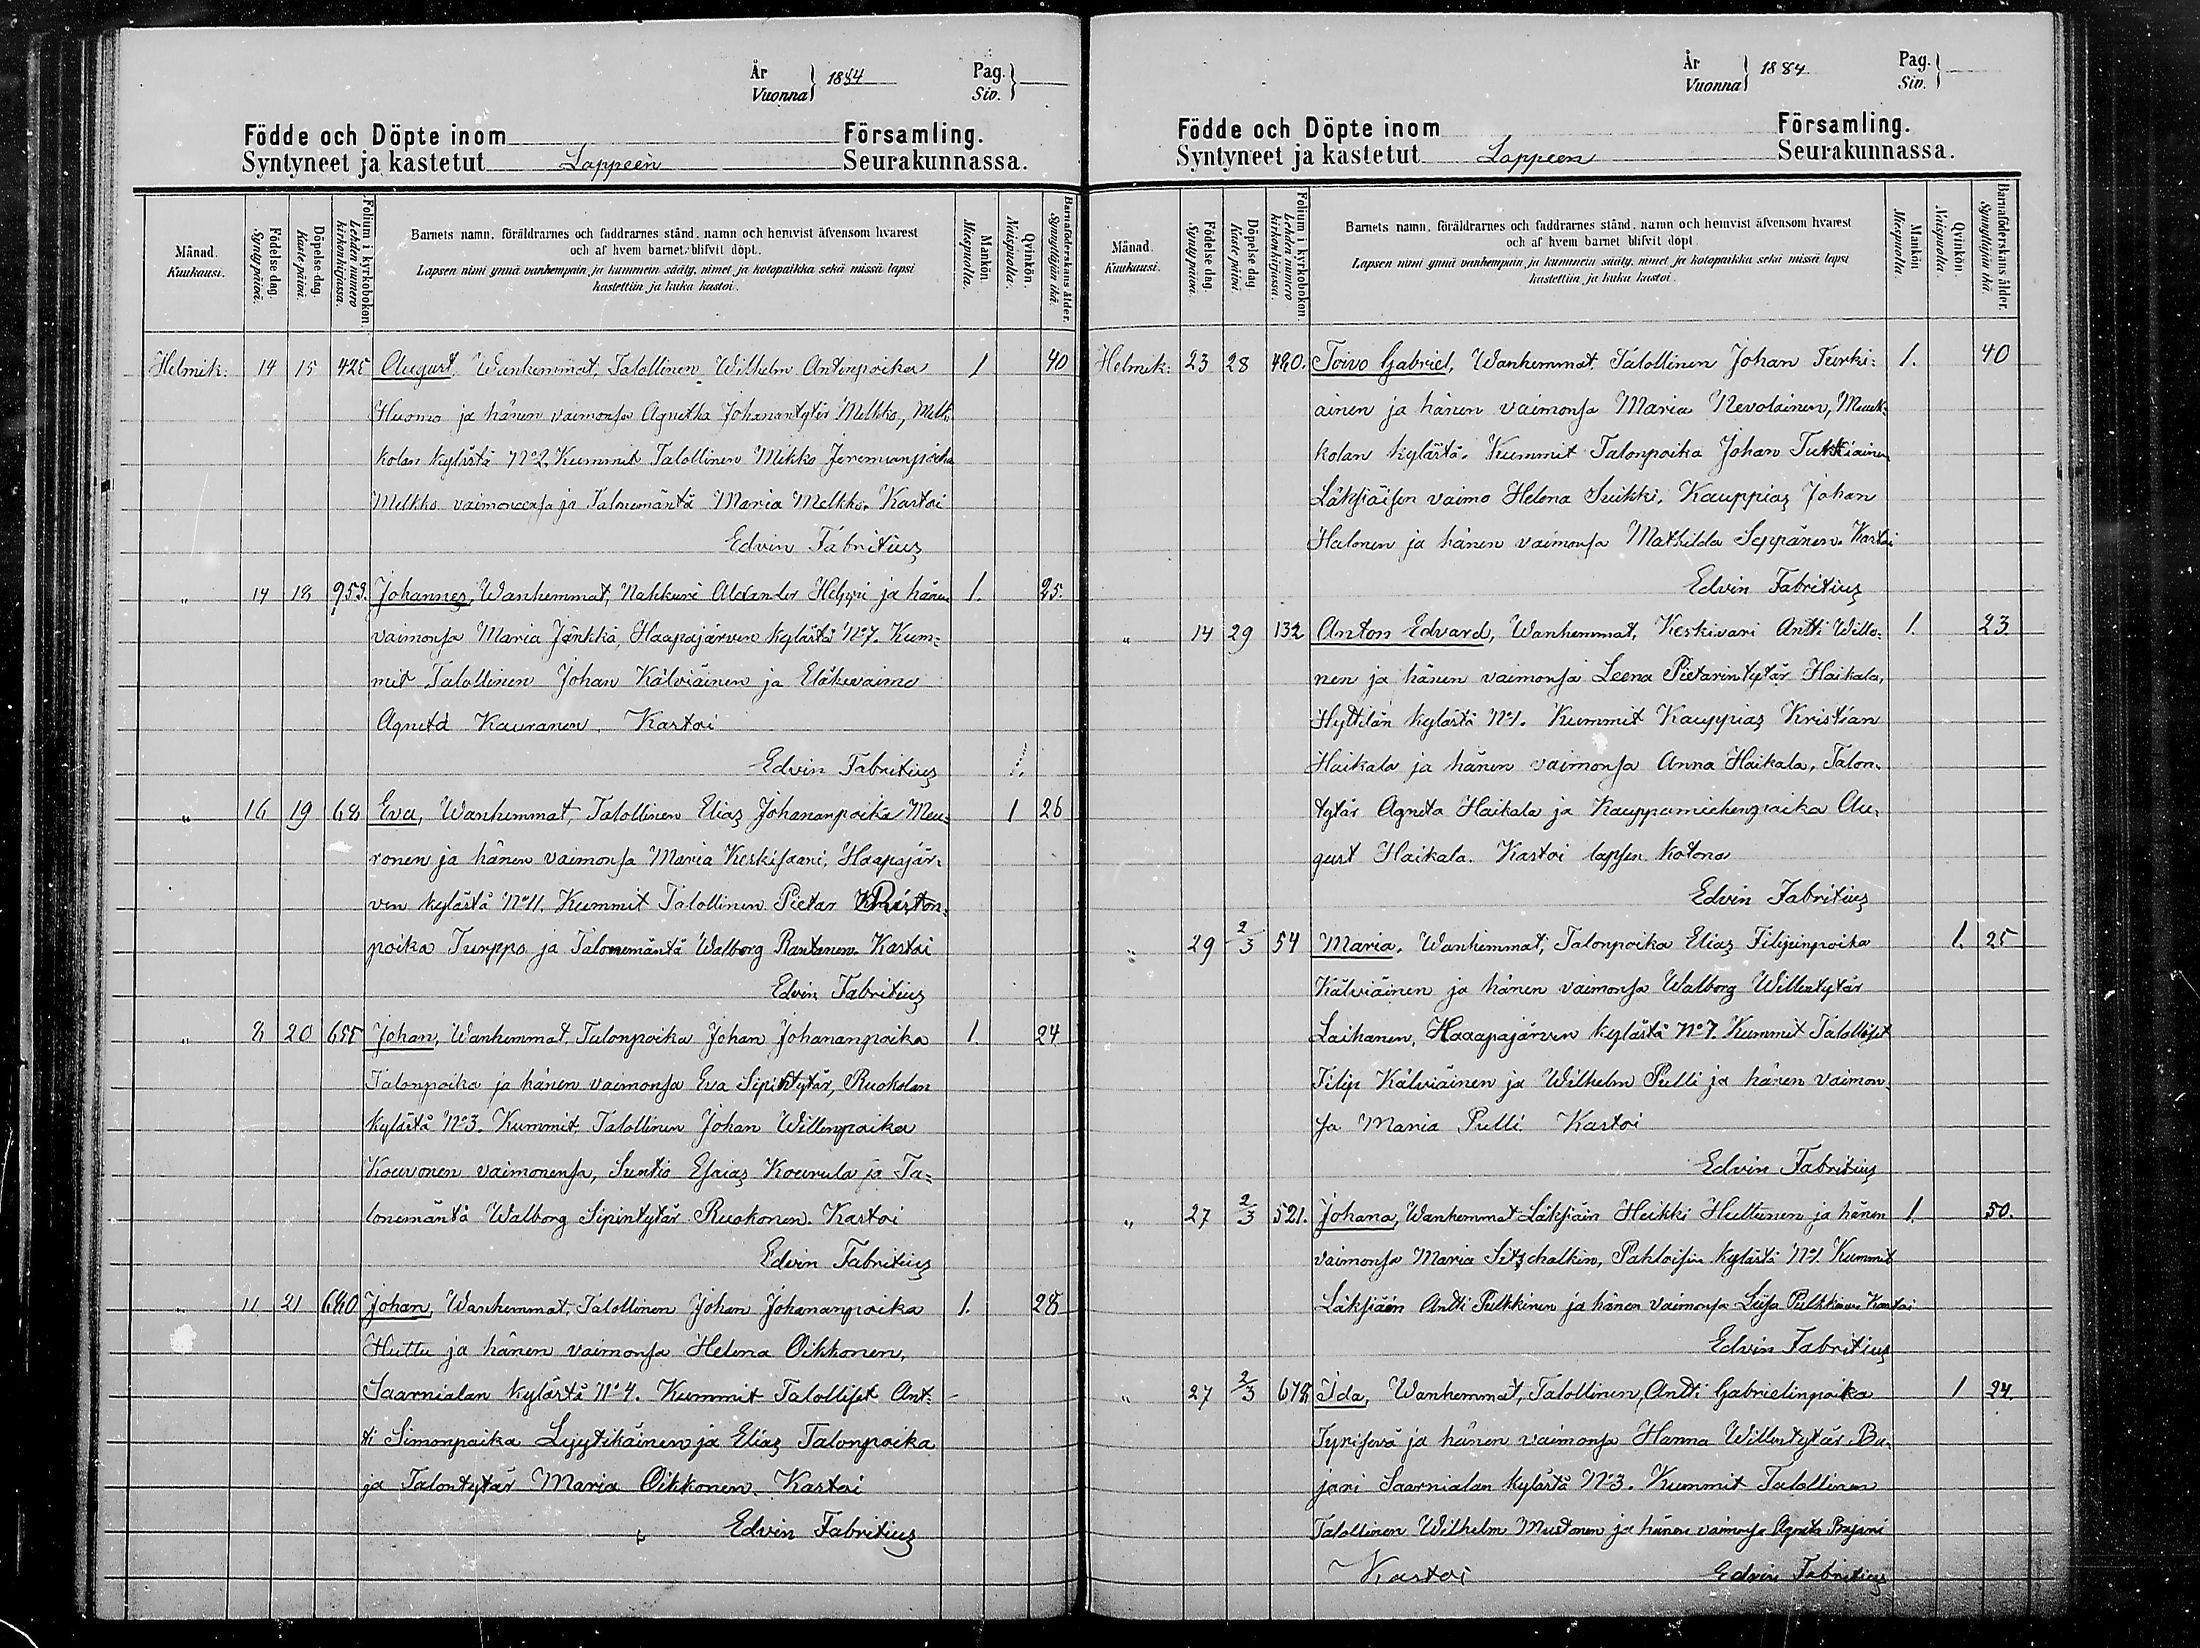 År
Vuonna } 1884
Pag.
Siv. }
Födde och Döpte inom Församling.
Syntyneet ja kastetut Lappeen Seurakunnassa.
Månad.
Kuukausi.
Födelse dag.
Synty päivä.
Döpelse dag.
Kaste päivä.
Folium i kyrkoboken.
Lehden numero
kirkonkirjassa.
Barnets namn, föräldrarnes och faddrarnes stånd, namn och hemvist äfvensom hvarest
och af hvem barnet blifvit döpt.
Lapsen nimi ynnä vanhempain ja kummein sääty, nimet ja kotopaikka sekä missä lapsi
kastettiin ja kuka kastoi.
Mankön.
Miespuolta.
Qvinkön.
Naispuolta.
Barnaföderskans ålder.
Synnyttäjän ikä.
Helmik. 14 15 425 August, Wanhemmat, Talollinen Wilhelm Antinpoika 1 40
Huomo ja hänen vaimonsa Agnetha Johanantytär Melkko, Melk-
kolan kylästä No 2, Kummit Talollinen Mikko Jeremianpoika
Melkko vaimoneensa ja Talonemäntä Maria Melkko. Kastoi
Edvin Fabritius
" 14 18 953. Johannes, Wanhemmat, Nahkuri Alexander Helppi ja hänen 1. 25.
vaimonsa Maria Jänkkä, Haapajärven kylästä No 7. Kum=
mit Talollinen Johan Kälviäinen ja Eläkevaimo
Agneta Kauranen. Kastoi
Edvin Fabritius 1.
" 16 19 68 Eva, Wanhemmat, Talollinen Elias Johananpoika Meu= 1 26
ronen ja hänen vaimonsa Maria Keskisaari, Haapajär=
ven kylästä No 11. Kummit Talollinen Pietar
poika Turppo ja Talonemäntä Walborg Rantanen. Kastoi
Edvin Fabritius
" 8 20 655 Johan, Wanhemmat, Talonpoika Johan Johananpoika 1. 24
Talonpoika ja hänen vaimonsa Eva Sipintytär, Ruokolan
kylästä No 3. Kummit, Talollinen Johan Willenpoika
Kouvonen vaimonensa, Suntio Esaias Kourula ja Ta=
lonemäntä Walborg Sipintytär Ruokonen. Kastoi
Edvin Fabritius
" 11 21 680 Johan, Wanhemmat, Talollinen Johan Johananpoika 1. 28
Huttu ja hänen vaimonsa Helena Oikkonen,
Saarnialan kylästä No 4. Kummit Talolliset Ant-
ti Simonpoika Lyytikäinen ja Elias Talonpoika
ja Talontytär Maria Oikkonen. Kastoi
Edvin Fabritius
År
Vuonna } 1884
Pag.
Siv. }
Födde och Döpte inom Församling.
Syntyneet ja kastetut Lappeen Seurakunnassa.
Månad.
Kuukausi.
Födelse dag.
Synty päivä.
Döpelse dag.
Kaste päivä.
Folium i kyrkoboken.
Lehden numero
kirkonkirjassa.
Barnets namn, föräldrarnes och faddrarnes stånd, namn och hemvist äfvensom hvarest
och af hvem barnet blifvit döpt.
Lapsen nimi ynnä vanhempain ja kummein sääty, nimet ja kotopaikka sekä missä lapsi
kastettiin ja kuka kastoi.
Mankön.
Miespuolta.
Qvinkön.
Naispuolta.
Barnaföderskans ålder.
Synnyttäjän ikä.
Helmik. 23 28 480. Toivo Gabriel, Wanhemmat Talollinen Johan Turki= 1. 40
ainen ja hänen vaimonsa Maria Nevolainen, Muuk=
kolan kylästä. Kummit Talonpoika Johan Tukiainen
Läksiäisen vaimo Helena Suikki, Kauppias Johan
Halonen ja hänen vaimonsa Mathilda Seppänen. Kastoi
Edvin Fabritius
" 14 29 132 Anton Edvard, Wanhemmat, Keskivari Antti Willo= 1. 23
nen ja hänen vaimonsa Leena Pietarintytär Haikala,
Hyttilän kylästä No 1. Kummit Kauppias Kristian
Haikala ja hänen vaimonsa Anna Haikala, Talon-
tytär Agneta Haikala ja Kauppamiehenpoika Au-
gust Haikala. Kastoi lapsen kotona
Edvin Fabritius
" 29 2/3 54 Maria, Wanhemmat, Talonpoika Elias Filipinpoika 1. 25
Kälviäinen ja hänen vaimonsa Walborg Willentytär
Laihanen, Haaapajärven kylästä No 7. Kummit Talolliset
Filip Kälviäinen ja Wilhelm Pulli ja hänen vaimon-
sa Maria Pulli Kastoi
Edvin Fabritius
" 27 2/3 521. Johana, Wanhemmat Läksiäin Heikki Huttunen ja hänen 1. 50.
vaimonsa Maria, kylästä No 1. Kummit
Läksiäin Antti Pulkkinen ja hänen vaimonsa Leisa Pulkkinen Kastoi
Edvin Fabritius
" 27 2/3 678 Ida, Wanhemmat, Talollinen, Antti Gabrielinpoika 1 24.
Tyrisevä ja hänen vaimonsa Hanna Willentytär Ba-
jari Saarnialan kylästä No 3. Kummit Talollinen
Talollinen Wilhelm Mustonen ja hänen vaimonsa Agneta Bajari
Kastoi Edvin Fabritius